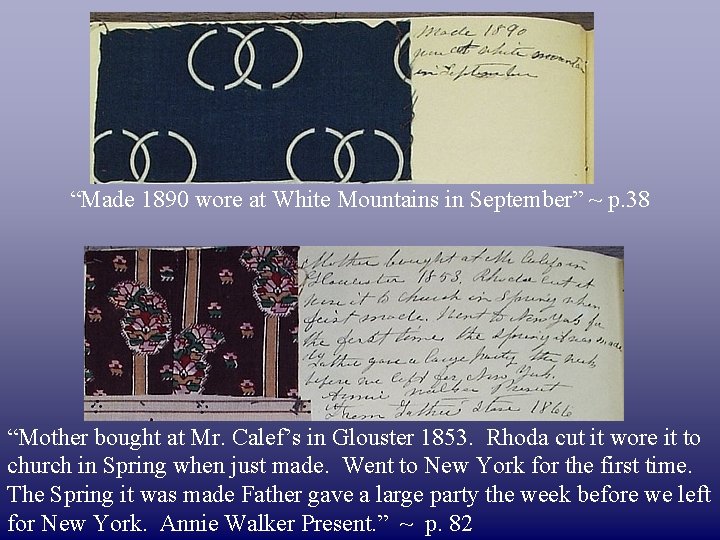 Made 1890
wore at White Mountains
in September
“Made 1890 wore at White Mountains in September” ~ p.38
Mother bought at Mr Calefs in
Gloucester 1853. Rhoda cut it
wore it to church in Spring when
first made. Went to New York for
the first time the spring it was made
Father gave a large party the week
before we left for New York.
Annie Walker Present
From Father's Store 1866
“Mother bought at Mr. Calef’s in Glouster 1853. Rhoda cut it wore it to
church in Spring when just made. Went to New York for the first time.
The Spring it was made Father gave a large party the week before we left
for New York. Annie Walker Present.” ~ p. 82